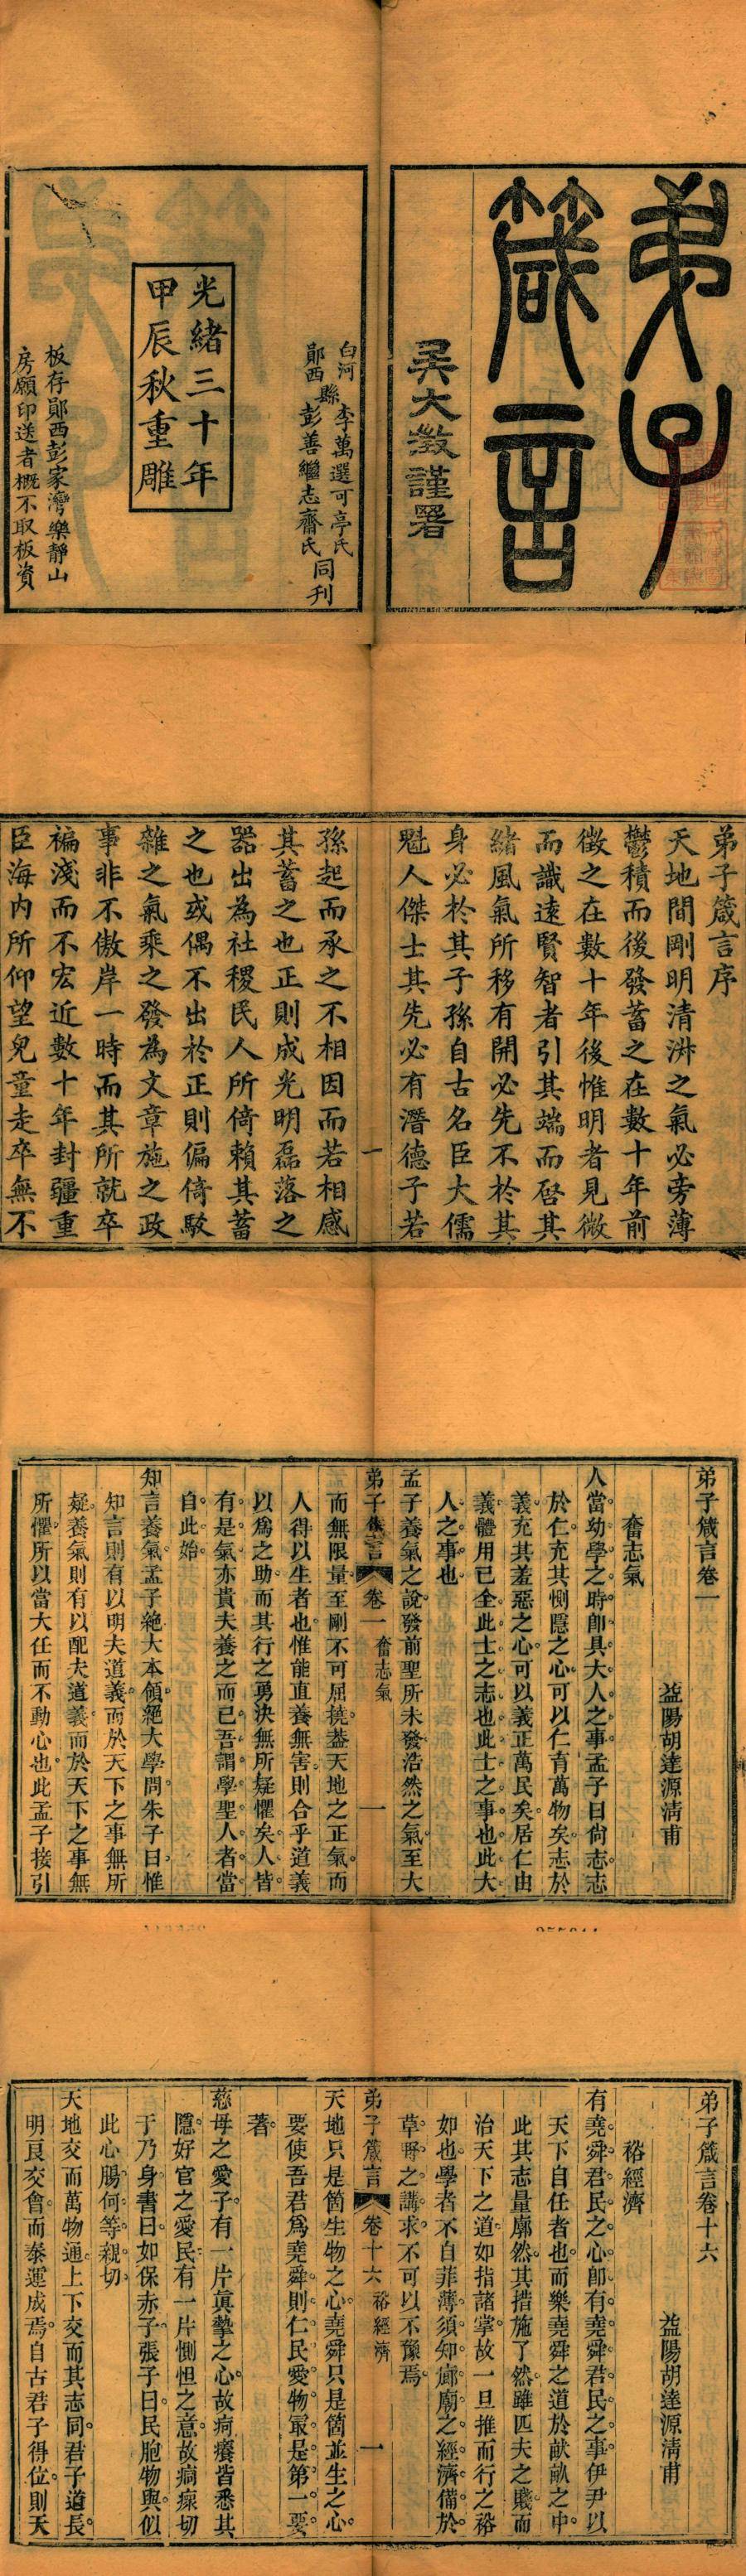 弟子
箴言
吳大澂謹署
白河縣李萬選可亭氏
鄖西彭善繼志齋氏同刊
光緒三十年
甲辰秋重雕
板存鄖西彭家灣樂靜山
房願印送者概不取板資
弟子箴言序
天地間剛明清淑之氣必旁薄
鬱積而後發蓄之在數十年前
徵之在數十年後惟明者見微
而識遠賢智者引其端而啓其
緒風氣所移有開必先不於其
身必於其子孫自古名臣大儒
魁人傑士其先必有潛德子若
一
孫起而承之不相因而若相感
其蓄之也正則成光明磊落之
器出為社稷民人所倚賴其蓄
之也或偶不出於正則偏倚駁
雜之氣乘之發為文章施之政
事非不傲岸一時而其所就卒
褊淺而不宏近數十年封疆重
臣海內所仰望兒童走卒無不
弟子箴言卷一
益陽胡達源清甫
奮志氣
人當幼學之時即具大人之事孟子曰尙志志
於仁充其惻隱之心可以仁育萬物矣志於
義充其羞惡之心可以義正萬民矣居仁由
義體用已全此士之志也此士之事也此大
人之事也
孟子養氣之說發前聖所未發浩然之氣至大
弟子箴言 卷一 奮志氣 一
而無限量至剛不可屈撓蓋天地之正氣而
人得以生者也惟能直養無害則合乎道義
以爲之助而其行之勇決無所疑懼矣人皆
有是氣亦貴夫養之而已吾謂學聖人者當
自此始
知言養氣孟子絕大本領絕大學問朱子曰惟
知言則有以明夫道義而於天下之事無所
疑養氣則有以配夫道義而於天下之事無
所懼所以當大任而不動心也此孟子接引
弟子箴言卷十六
益陽胡達源清甫
裕經濟
有堯舜君民之心即有堯舜君民之事伊尹以
天下自任者也而樂堯舜之道於畎畝之中
此其志量廓然其措施了然雖匹夫之賤而
治天下之道如指諸掌故一旦推而行之裕
如也學者不自菲薄須知廊廟之經濟備於
草野之講求不可以不豫焉
弟子箴言 卷十六 裕經濟 一
天地只是箇生物之心堯舜只是箇並生之心
要使吾君爲堯舜則仁民愛物最是第一要
著
慈母之愛子有一片眞摯之心故疴癢皆悉其
隱好官之愛民有一片惻怛之意故痌瘝切
于乃身書曰如保赤子張子曰民胞物與似
此心腸何等親切
天地交而萬物通上下交而其志同君子道長
明良交會而泰運成焉自古君子得位則天